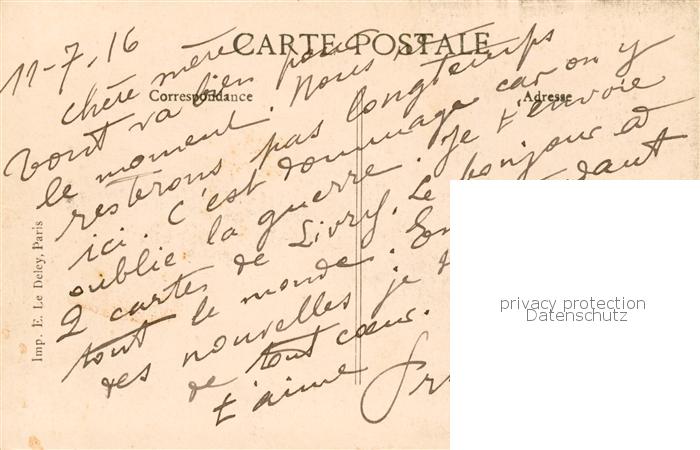 11-7.16
CARTE POSTALE
Correspondance
Adresse
Chère mère
tout va bien pour
le moment. Nous ne
resterons pas longtemps
ici. C'est dommage car on y
oublie la guerre. Je t'envoie
2 cartes de Livry. Le bonjour à
tout le monde. En
des nouvelles je
de tout cœur.
t'aime
Imp. E. Le Deley, Paris
privacy protection
Datenschutz